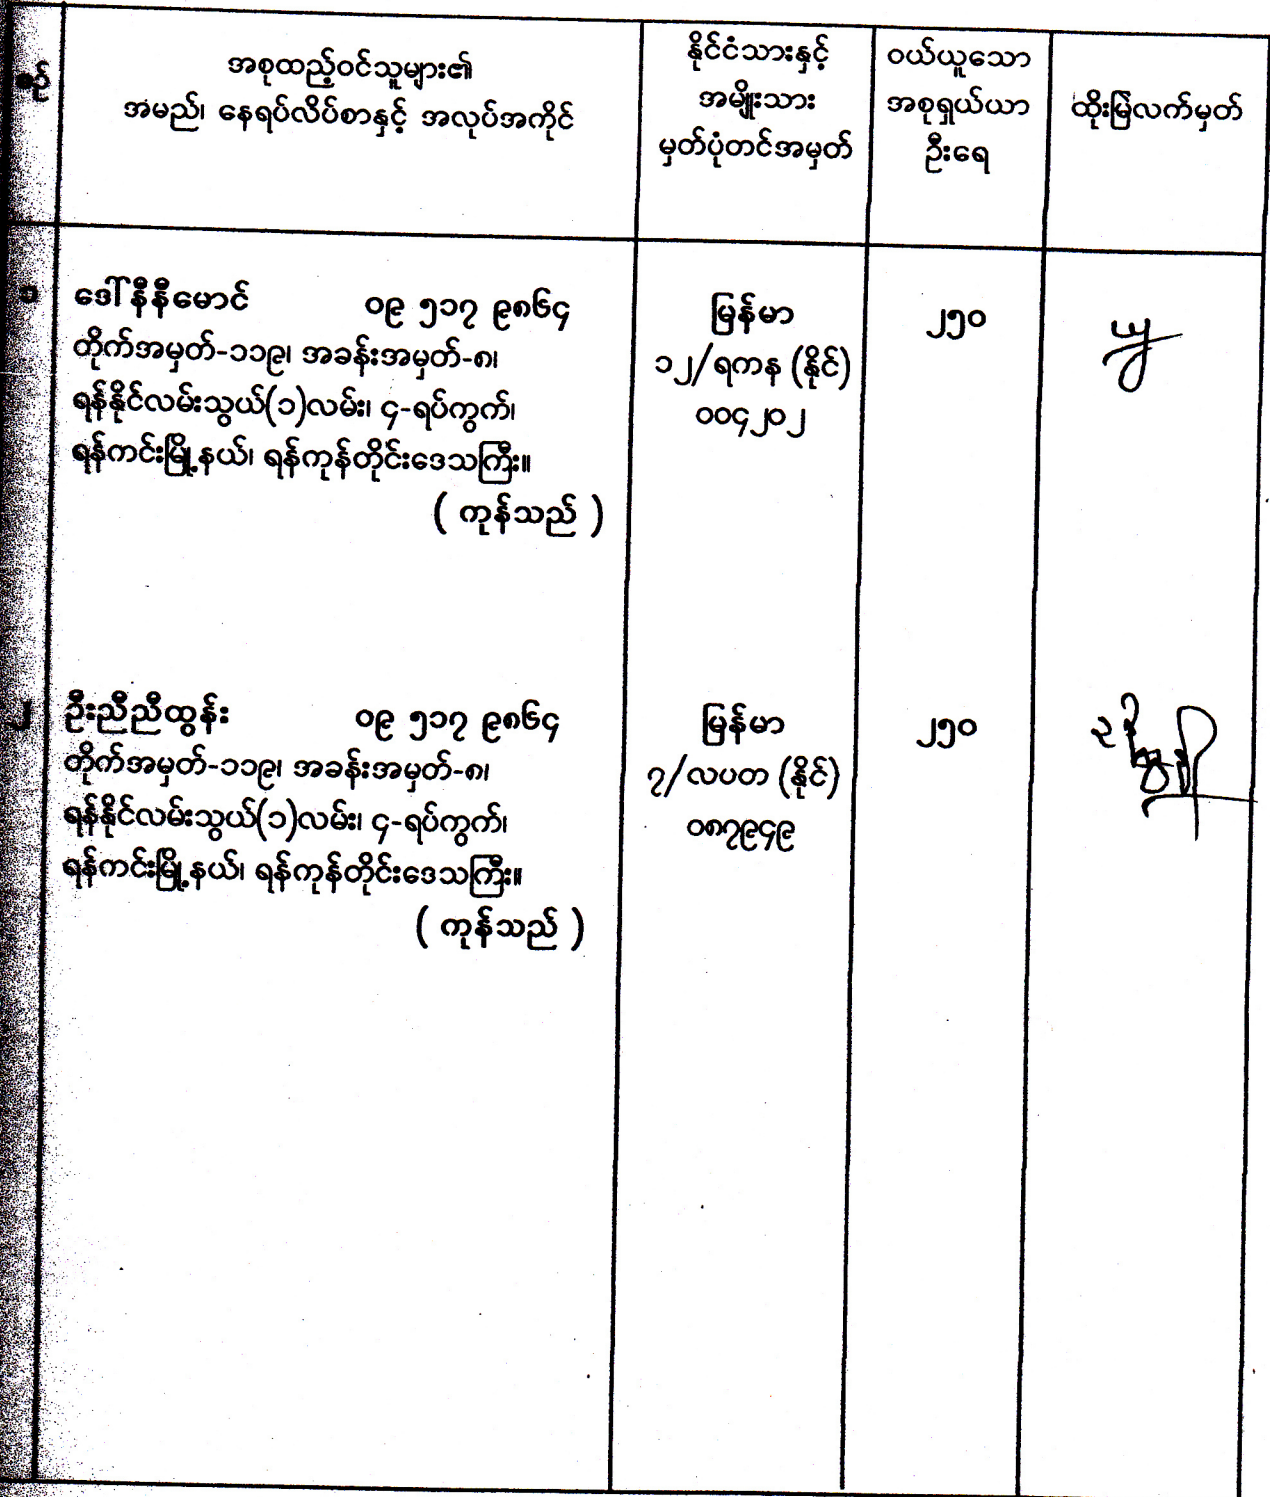 စဉ်
အစုထည့်ဝင်သူများ၏
အမည်၊ နေရပ်လိပ်စာနှင့် အလုပ်အကိုင်
နိုင်ငံသားနှင့်
အမျိုးသား
မှတ်ပုံတင်အမှတ်
ဝယ်ယူသော
အစုရှယ်ယာ
ဦးရေ
ထိုးမြဲလက်မှတ်
၁
ဒေါ်နီနီမောင် ၀၉ ၅၁၇ ၉၈၆၄
တိုက်အမှတ်-၁၁၉၊ အခန်းအမှတ်-၈၊
ရန်နိုင်လမ်းသွယ်(၁)လမ်း၊ ၄-ရပ်ကွက်၊
ရန်ကင်းမြို့နယ်၊ ရန်ကုန်တိုင်းဒေသကြီး။
( ကုန်သည် )
မြန်မာ
၁၂/ရကန (နိုင်)
၀၀၄၂၀၂
၂၅၀
၂
ဦးညီညီထွန်း ၀၉ ၅၁၇ ၉၈၆၄
တိုက်အမှတ်-၁၁၉၊ အခန်းအမှတ်-၈၊
ရန်နိုင်လမ်းသွယ်(၁)လမ်း၊ ၄-ရပ်ကွက်၊
ရန်ကင်းမြို့နယ်၊ ရန်ကုန်တိုင်းဒေသကြီး။
( ကုန်သည် )
မြန်မာ
၇/လပတ (နိုင်)
၀၈၇၉၄၉
၂၅၀